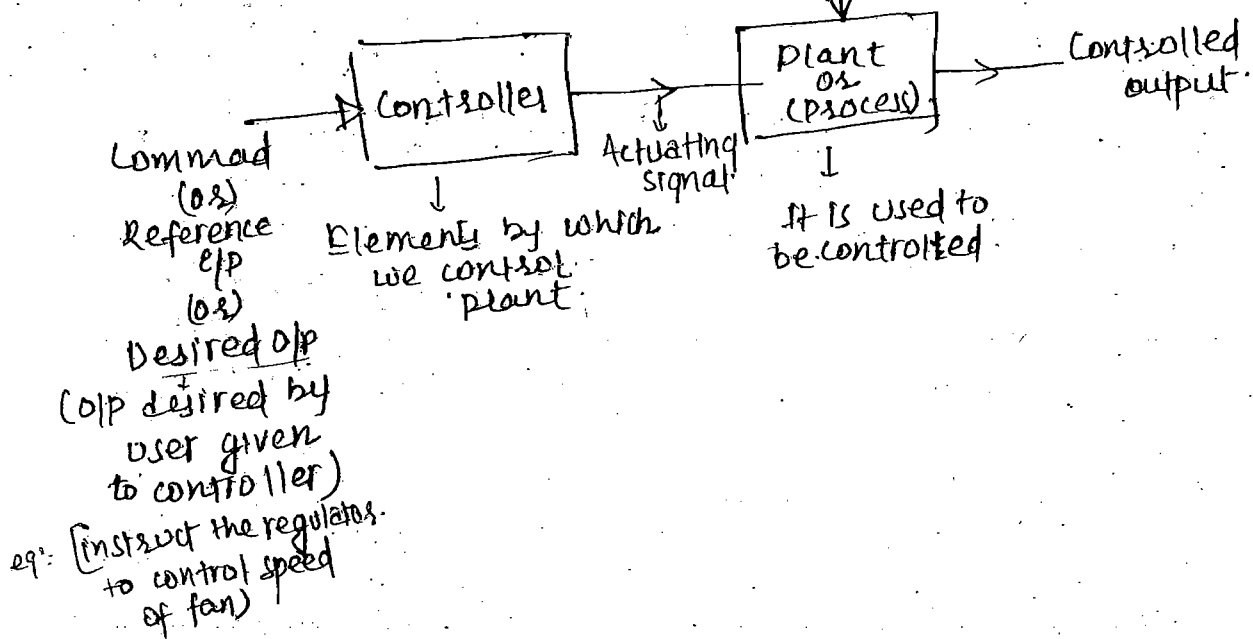 Controller
Plant
or
(process)
Controlled
output.
Actuating
signal.
Commad
(or)
Reference
e/p
(or)
Desired o/p
(o/p desired by
user given
to controller)
eg:- [instruct the regulator.
to control speed
of fan)
Elements by which
we control
plant.
It is used to
be controlled.